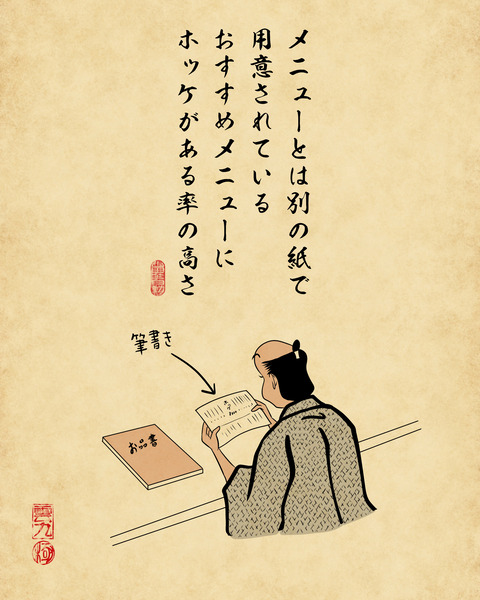 メニューとは別の紙で
用意されている
おすすめメニューに
ホッケがある率の高さ
筆書き
お品書